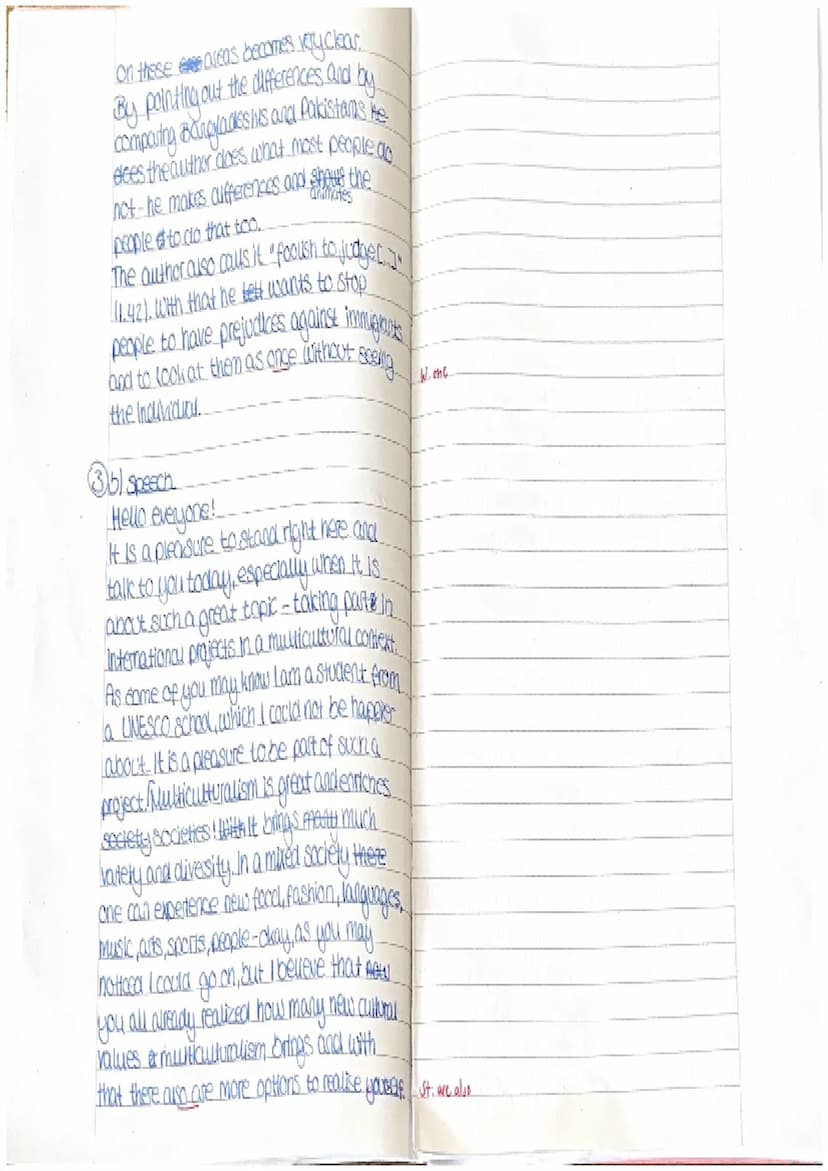 on these areas becomes very clear.
By pointing out the differences and by
comparing Bangladeshis and Pakistanis he
does the author does what most people do
not - he makes differences and shows the
animates
people to do that too.
The author also calls it "foolish to judge [...]"
(l.42). With that he wants to stop
people to have prejudices against immigrants
and to look at them as once without seeing
W. one
the individual.
③ b) Speech
Hello everyone!
It is a pleasure to stand right here and
talk to you today, especially when it is
about such a great topic - taking part in
international projects in a multicultural context.
As some of you may know I am a student from
a UNESCO school, which I could not be happier
about. It is a pleasure to be part of such a
project. Multiculturalism is great and enriches
society societies! With It brings many much
variety and diversity. In a mixed society there
one can experience new food, fashion, languages,
music, arts, sports, people - okay, as you may
noticed I could go on, but I believe that now
you all already realized how many new cultural
values multiculturalism brings and with
that there also are more options to realise yourself.
St. are also